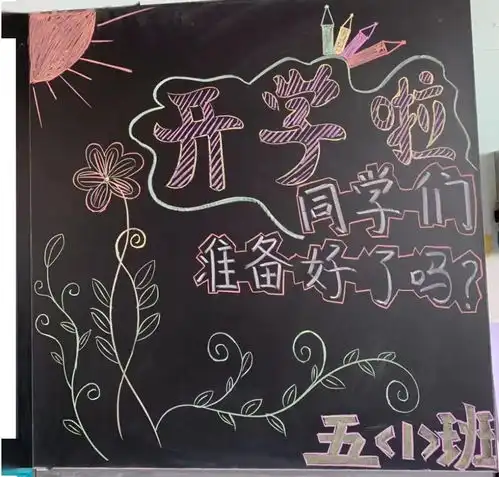 开学啦
同学们
准备好了吗?
五<1>班